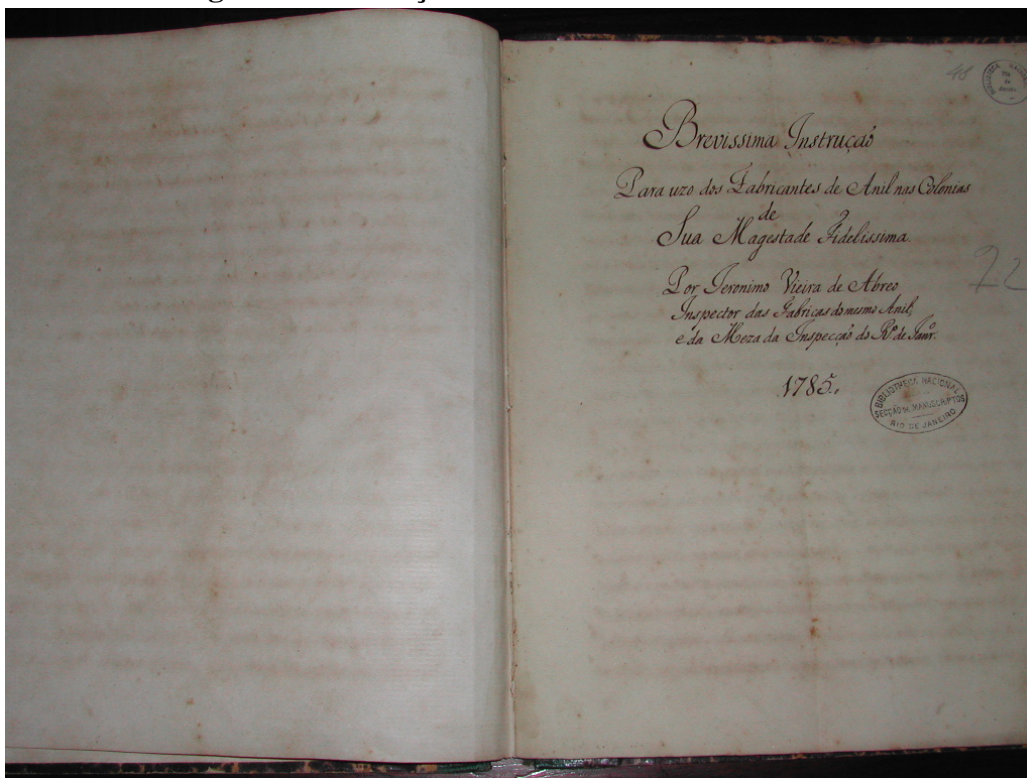 48
BIBLIOTHECA NACIONAL
Rio de Janeiro
Brevissima Instrucçaõ
Para uzo dos Fabricantes de Anil nas Colonias
de
Sua Magestade Fidelissima.
Por Jeronimo Vieira de Abreo
Inspector das Fabricas do mesmo Anil,
e da Meza da Inspecçaõ do Rº de Janrº.
22
1785.
BIBLIOTHECA NACIONAL
SECÇÃO DE MANUSCRIPTOS
RIO DE JANEIRO